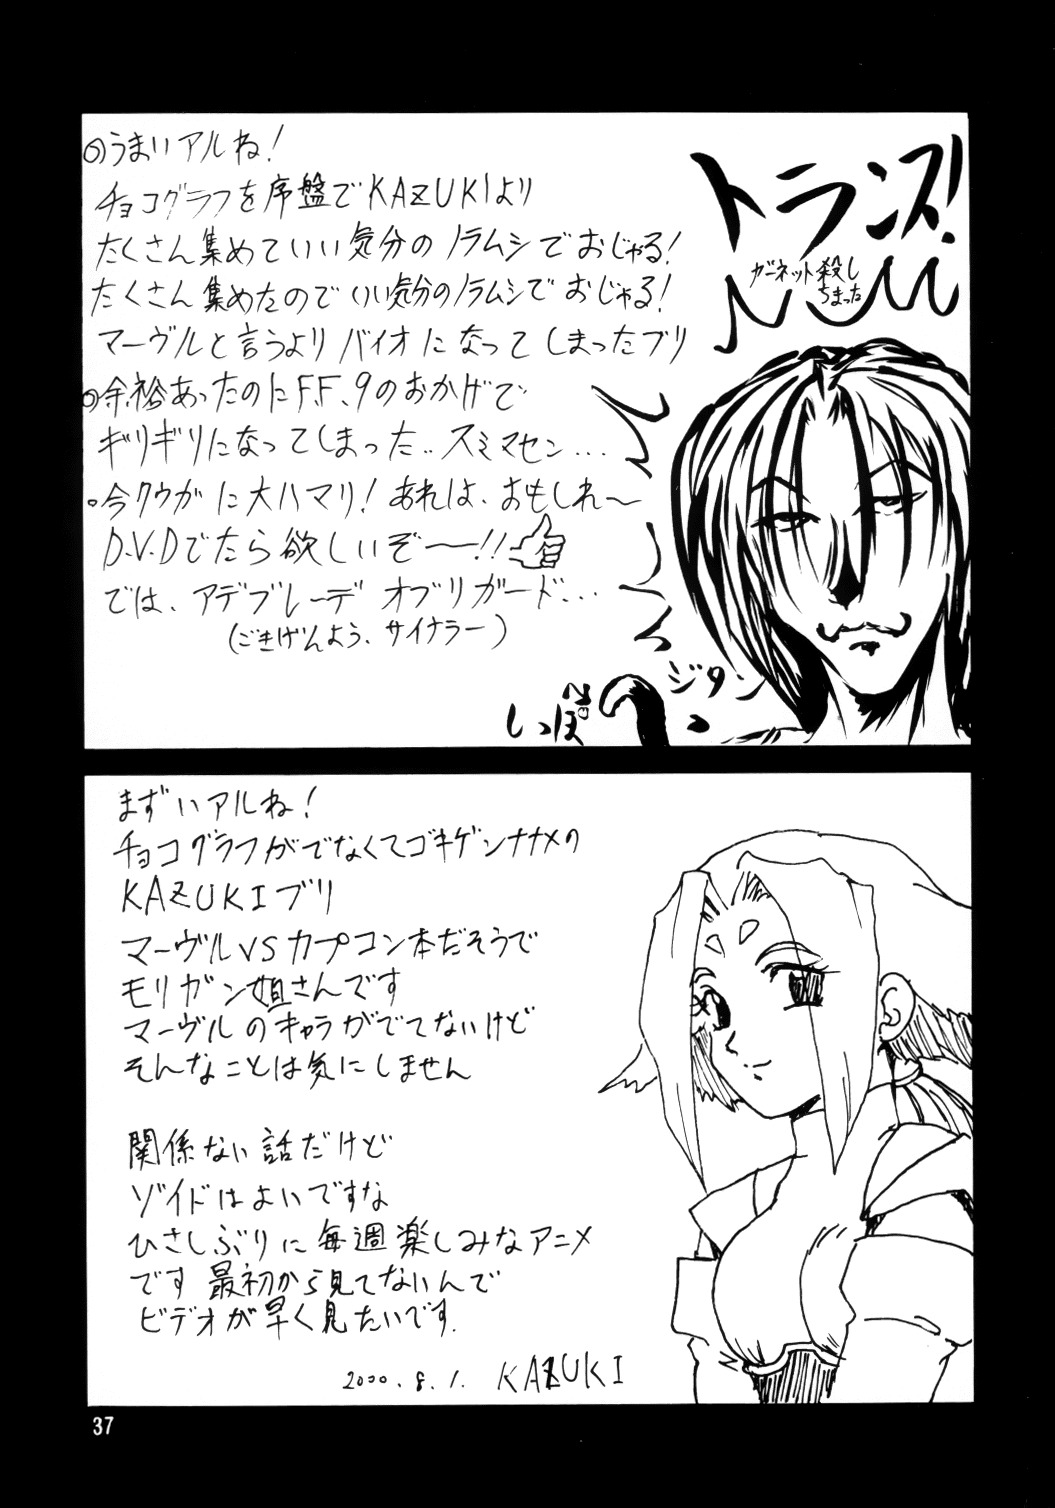 ○うまいアルね!
チョコグラフを序盤でKAZUKIより
たくさん集めていい気分のノラムシでおじゃる!
たくさん集めたのでいい気分のノラムシでおじゃる!
マーヴルと言うよりバイオになってしまったブリ
○余裕あったのにF.F.9のおかげで
ギリギリになってしまった..スミマセン...
・今クウガに大ハマリ!あれは、おもしれ〜
D.V.Dでたら欲しいぞ〜!!
では、アデブレーデ オブリガード...
(ごきげんよう、サイナラー)
トランス!
ガーネット殺し
ちまった
ジタン
しっぽ
まずいアルね!
チョコグラフがでなくてゴキゲンナナメの
KAZUKIブリ
マーヴルVSカプコン本だそうで
モリガン姐さんです
マーヴルのキャラがでてないけど
そんなことは気にしません
関係ない話だけど
ゾイドはよいですな
ひさしぶりに毎週楽しみなアニメ
です 最初から見てないんで
ビデオが早く見たいです.
2000.8.1. KAZUKI
37